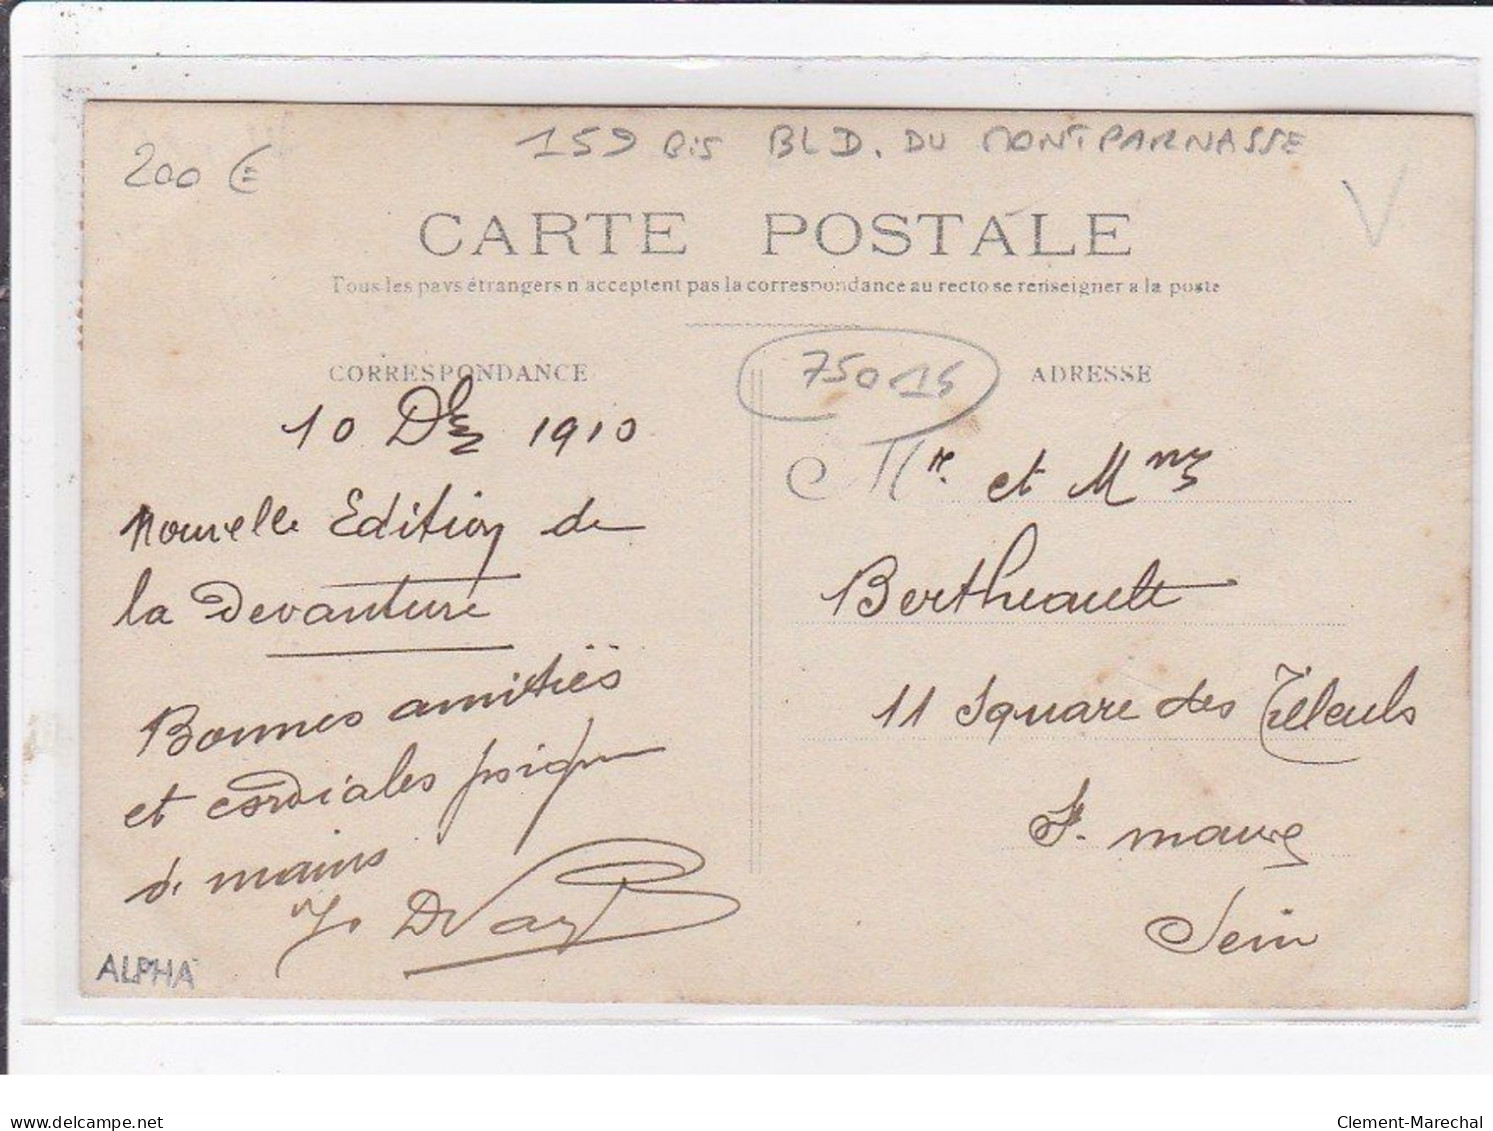 159 Bis BLD. DU MONTPARNASSE
200 €
V
CARTE POSTALE
Tous les pays étrangers n'acceptent pas la correspondance au recto se renseigner a la poste
75015
CORRESPONDANCE
10 Dbre 1910
Nouvelle Edition de
la Devanture
Bonnes amitiés
et cordiales poignées
de mains
ALPHA
ADRESSE
Mr. et Mme
Bertheault
11 Square des Tilleuls
St. Maure
Seine
delcampe.net
Clement-Marechal